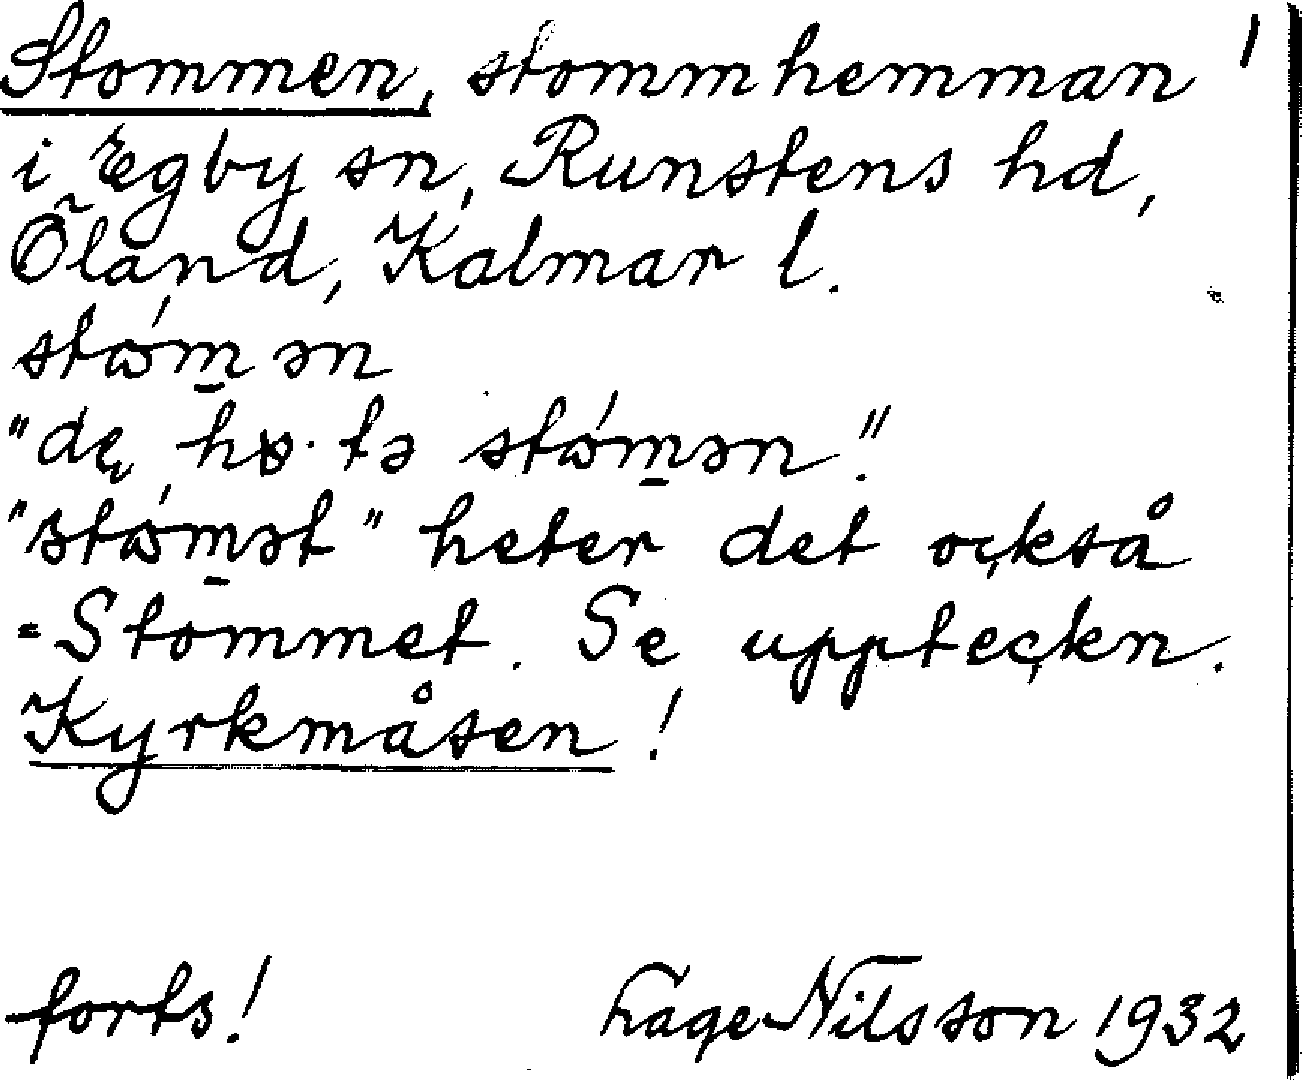 Stommen, stommhemman 1
i Egby sn, Runstens hd,
Öland, Kalmar l.
stɷ́m̲ən
"dę, tə stɷ́m̲ən."
"stɷ́m̲ət" heter det också
=Stommet. Se uppteckn.
Kyrkmåsen!
forts! Lage Nilsson 1932